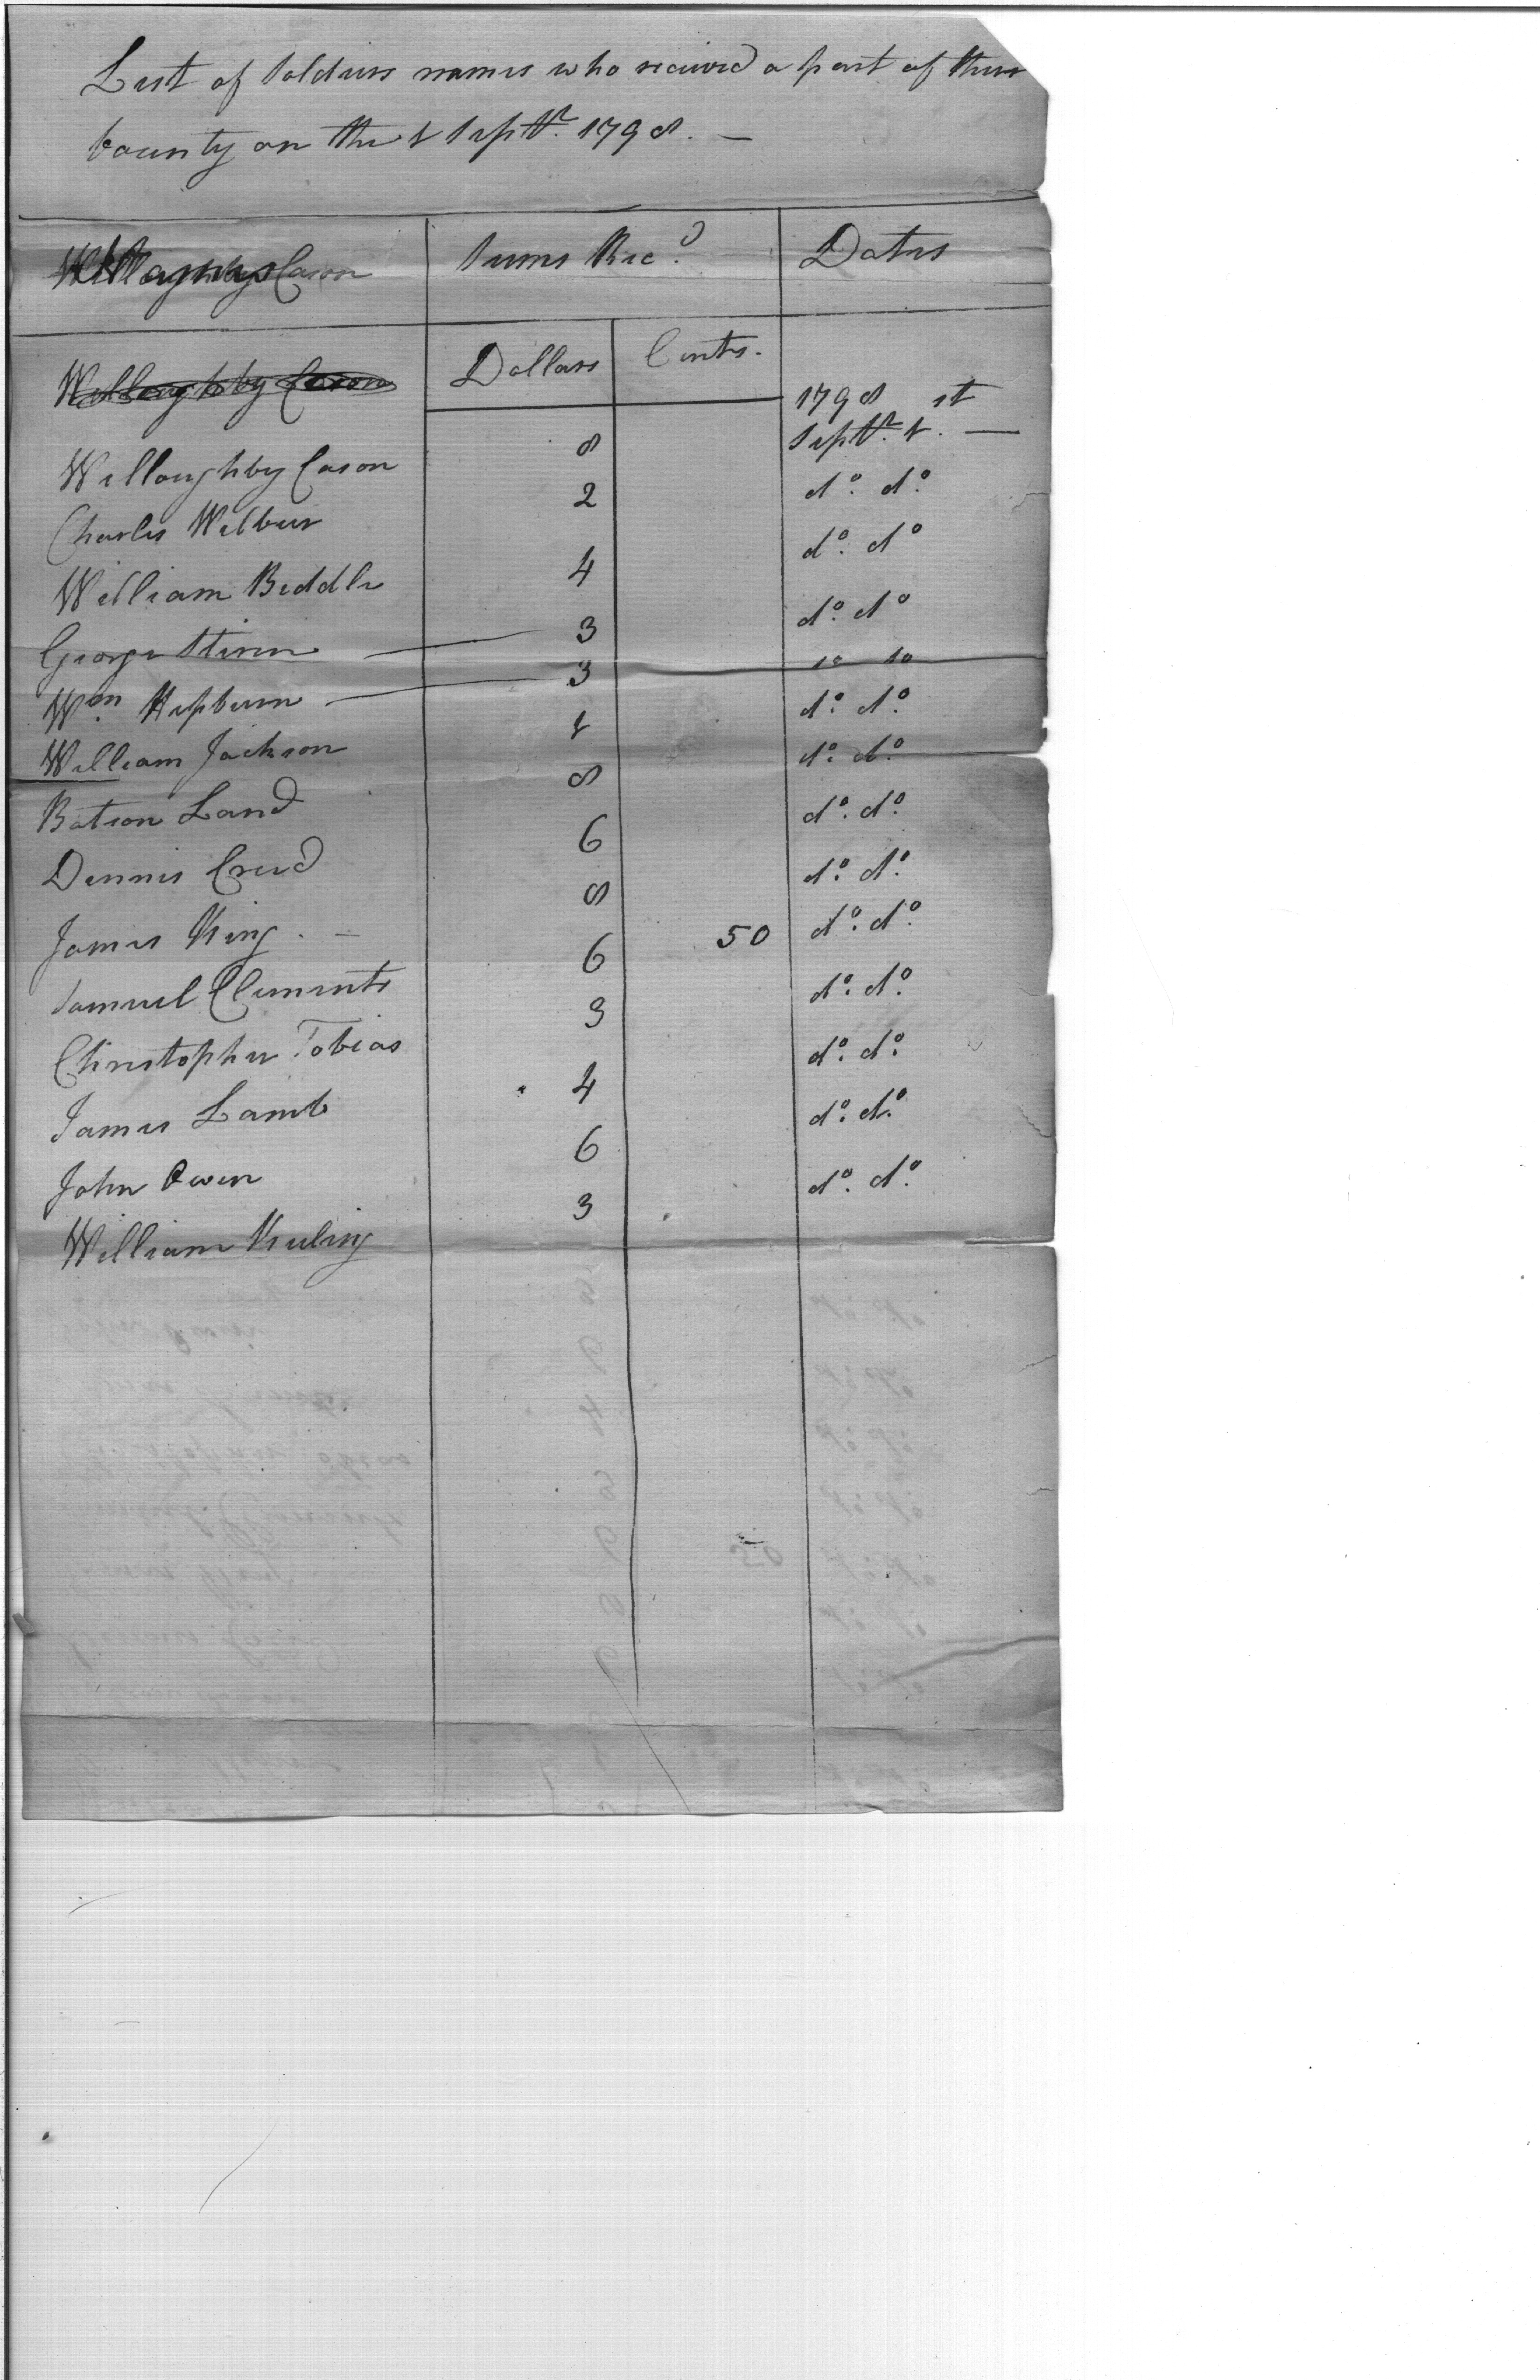 List of Soldiers names who received a part of their
bounty on the 1 Septr. 1798. —
Names Sums Recd. Dates
Willoughby Cason Dollars Cents.
1798 st
Willoughby Cason 8 Septr. 1. —
Charles Wilbur 2 do. do.
William Biddle 4 do. do
George Stiven — 3 do. do
Wm. Hepburn — 3 do do
William Jackson 1 do. do.
Batson Land 8 do. do.
Dennis Creed 6 do. do.
James King. — 8 do. do.
Samuel Clements 6 50 do. do.
Christopher Tobias 3 do. do.
James Lamb 4 do. do.
John Owen 6 do. do.
William Keeling 3 do. do.